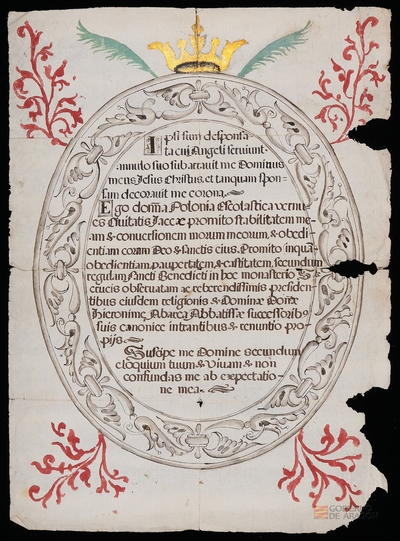 Ipsi sum desponsa
ta cui Angeli seruiunt
annulo suo subarrauit me Dominus
meus Jesus Christus, et tanquam spon-
sam decorauit me corona.
Ego domna Polonia Escolastica
es Ciuitatis Jaccæ promito stabilitatem me-
am & conuersionem morum meorum, & obedi-
entiam coram Deo & sanctis eius. Promito inquā
obedientiam, paupertatem, & castitatem, secundum
regulam sancti Benedicti in hoc monasterio S
crucis obseruatam ac reberendissimis presiden-
tibus eiusdem religionis & Dominæ Donæ
Hieronimę Abarca Abbatissæ successorib9
suis canonice intrantibus & renuntio pro-
pijs.
Suscipe me Domine secundum
eloquium tuum & Viuam & non
confundas me ab expectatio-
ne mea.
GOBIERNO
DE ARAGON